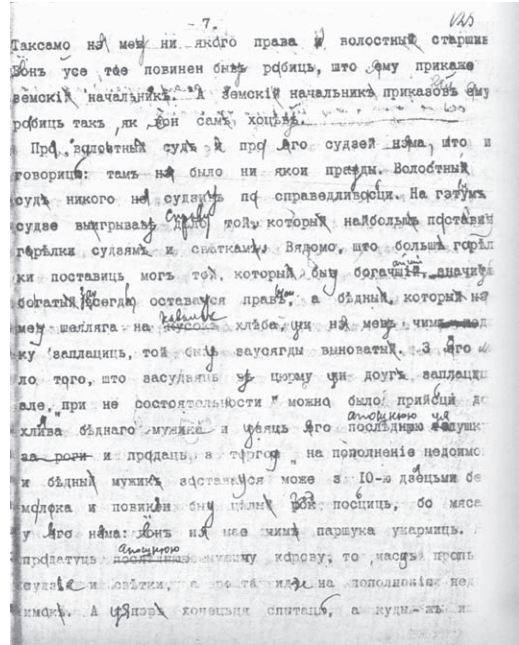 - 7. -
125
Таксамо не меў ни якого права и волостный старшин
Вонъ усе тое повинен быў рабиць, што ему прикаже
земскій начальникъ. А земскій начальникъ приказовъ ему
робиць так, як вон самъ хоцеў.
Про волостный судъ и про яго судзей няма, што и
говориць: там не было ни якои правды. Волостный
судъ никого не судзиў по справедливосци. На гэтумъ
судзе выигрываў справу той, который найбольшъ поставиў
горѣлки судзям и свѣткам. Вядомо, што больше горѣл
ки поставиць мог той, который быў богачшій,
богатый оставауся правъ, а бѣдный, который не
меў шеляга на хлѣба, чи не меў чимъ
ку заплациць, той быў заусягды выноватый. З яго
ло того, што засудзяць у цюрму чи доугъ заплаци
але, "при не состоятельности" можно было прийсци до
хлива бѣднаго мужика и узяць яго апошнюю
за роги и продаць з торгоў "на пополненіе недоимо
и бѣдный мужик заставауся може з 10-ю дзецьми бе
молока и повинен быў цѣлый посциць, бо мяса
у яго няма: вон не мае чимъ паршука укармиць.
продатуць апошнюю мужичу корову, то часць пропь
судзи и свѣтки, а решта идзе на пополненіе нед
имок. А цяперъ хочецьця спытаць, а куды-ж и